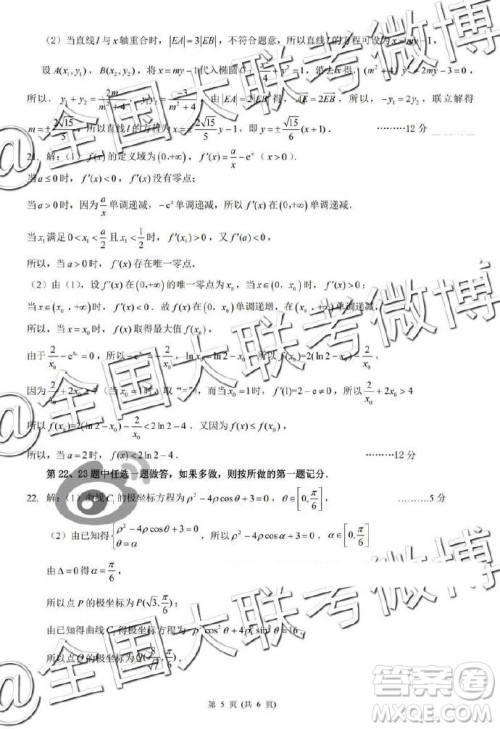 （2）当直线l与x轴重合时，|EA|=3|EB|，不符合题意，所以直线l的方程可设为x=my-1，
设A(x₁,y₁)，B(x₂,y₂)，将x=my-1代入椭圆
(m²+4)y²-2my-3=0，
所以，y₁+y₂=
由|EA|=2|EB| 所以，-y₁=2y₂，联立解得
m=±2√15/5，所以直线l的方程为x=±2√15/5 y-1，即 y=±√15/6(x+1)． ………12分
21. 解：（1）f(x)的定义域为(0,+∞)，f'(x)=a/x-eˣ（x>0）．
当a≤0时，f'(x)<0，f'(x)没有零点；
当a>0时，因为a/x单调递减，-eˣ单调递减，所以f'(x)在(0,+∞)单调递减．
当x₁满足0<x₁<a/2且x₁<1/2时，f'(x₁)>0，又f'(a)<0，
所以，当a>0时，f'(x)存在唯一零点．
（2）由（1），设f'(x)在(0,+∞)的唯一零点为x₀，当x∈(0,x₀)时，f'(x)>0；
当x∈(x₀,+∞)时，f'(x)<0．故f(x)在(0,x₀)单调递增，在(x₀,+∞)单调递减，
所以，当x=x₀时，f(x)取得最大值f(x₀)，
由于2/x₀-e^x₀=0，所以 ln x₀=ln2-x₀，所以f(x₀)=2(ln2-x₀)
因为2/x₀+2x₀≥4（当x₀=1时，取"="），而当x₀=1时，f'(1)=2-e≠0，所以2/x₀+2x₀>4
所以f(x₀)=2(ln2-x₀) <2ln2-4．又f(x)≤f(x₀)，
所以，当a=2时，f(x)<2ln2-4． ………12分
第22、23题中任选一题做答，如果多做，则按所做的第一题记分．
22. 解：（1）曲线C₁的极坐标方程为ρ²-4ρcosθ+3=0，θ∈[0,π/6] ………5分
（2）由已知得{ρ²-4ρcosθ+3=0 θ=α，所以ρ²-4ρcosα+3=0，α∈[0,π/6]
由Δ=0得α=π/6，
所以点P的极坐标为P(√3,π/6)；
由已知得曲线C₂得极坐标方程为ρ²cos²θ+4ρ²sin²θ=16，
所以点Q的极坐标为
第 5 页（共 6 页）
@全国大联考微博
@全国大联考微博
答案圈